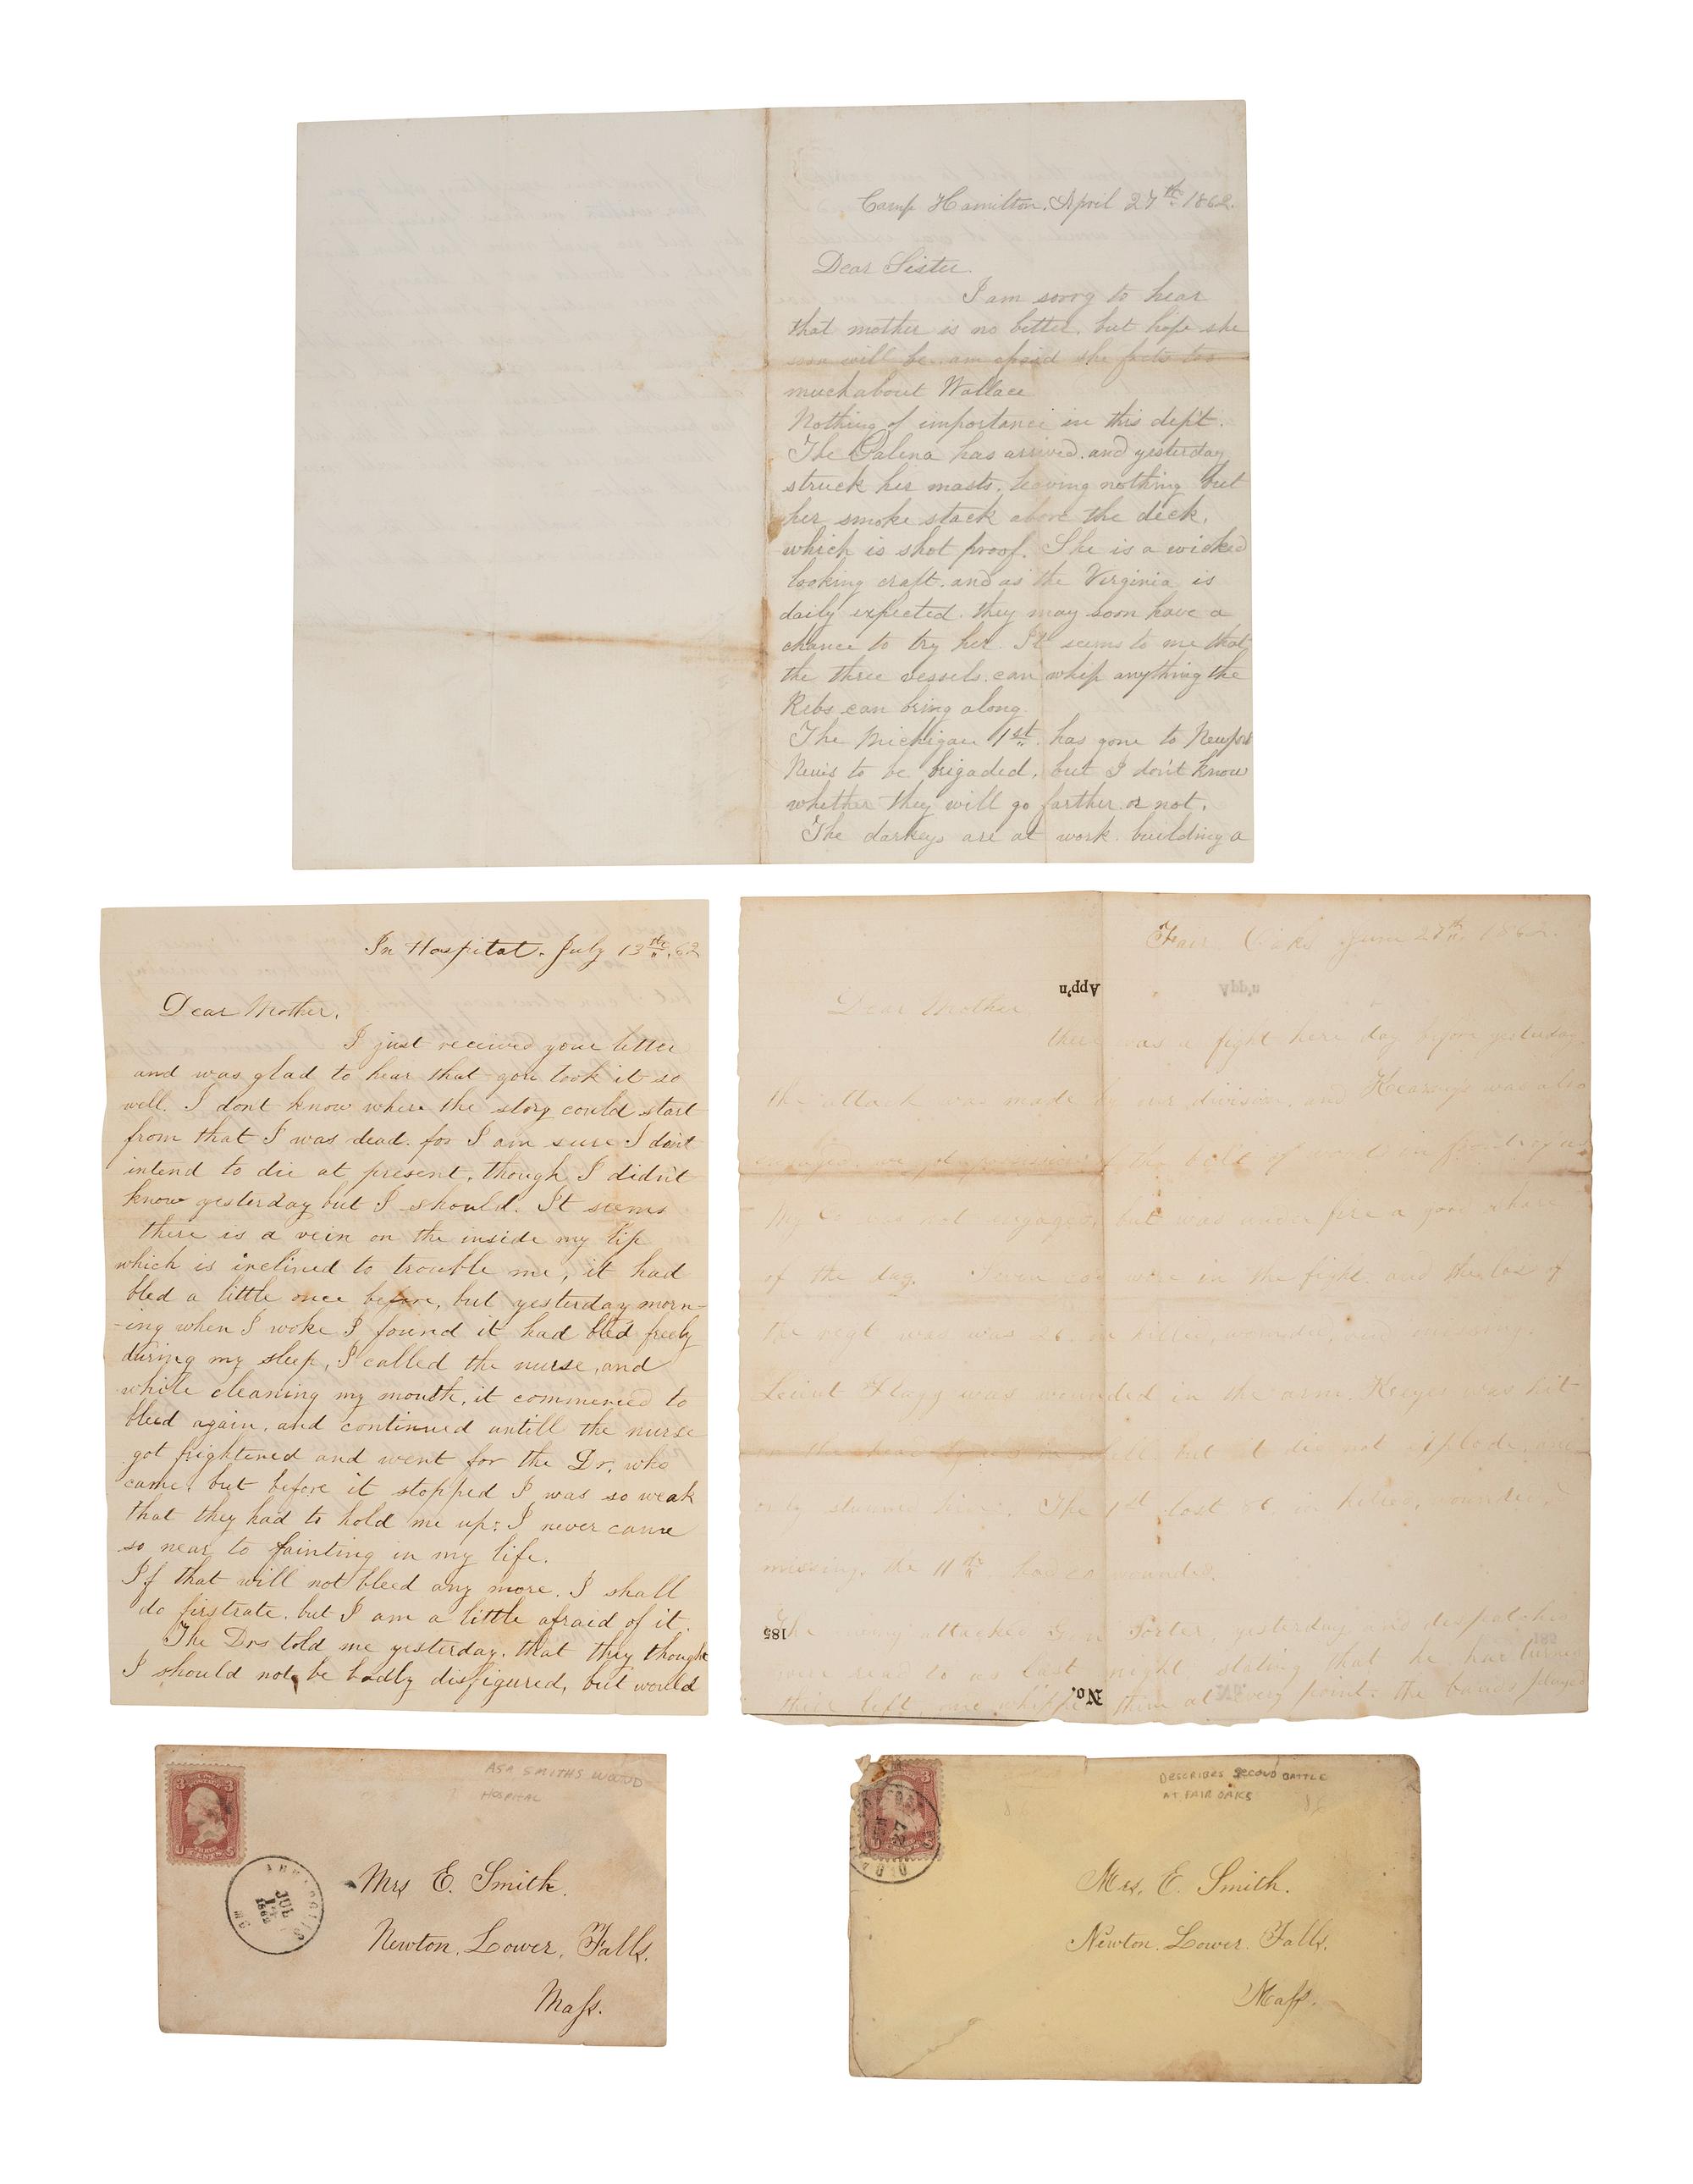 Camp Hamilton. April 27th 1862.
Dear Sister.
I am sorry to hear
that mother is no better, but hope she
soon will be. am afraid she frets too
much about Wallace
Nothing of importance in this dep't.
The Galena has arrived. and yesterday
struck her masts, leaving nothing but
her smoke stack above the deck,
which is shot proof. She is a wicked
looking craft. and as the Virginia is
daily expected. they may soon have a
chance to try her. It seems to me that
the three vessels. can whip anything the
Rebs can bring along.
The Michigan 1st has gone to Newport
News to be brigaded, but I don't know
whether they will go farther or not.
The darkeys are at work building a
In Hospital. July 13th, 62
Dear Mother.
I just received your letter
and was glad to hear that you took it so
well. I dont know where the story could start
from that I was dead. for I am sure I don't
intend to die at present, though I didn't
know yesterday but I should. It seems
there is a vein on the inside my lip
which is inclined to trouble me, it had
bled a little once before, but yesterday morn-
-ing when I woke I found it had bled freely
during my sleep, I called the nurse, and
while cleaning my mouth, it commenced to
bleed again, and continued untill the nurse
got frightened and went for the Dr. who
came, but before it stopped I was so weak
that they had to hold me up: I never came
so near to fainting in my life.
If that will not bleed any more. I shall
do firstrate. but I am a little afraid of it.
The Drs told me yesterday. that they thought
I should not be badly disfigured, but would
Fair Oaks June 27th 1862.
App'n
Dear Mother
there was a fight here day before yesterday
the attack was made by our division. and Kearneys was also
engaged we got possession of the belt of woods in front of us
My Co was not engaged, but was under fire a good share
of the day. Seven cos were in the fight. and the loss of
the regt was was in killed, wounded, missing.
Leiut Flagg was wounded in the arm. was hit
on the head by a shell. but it did not explode, and
only stunned him. The 1st lost 86 in killed, wounded &
missing. the 11th had wounded.
185
The enemy attacked Gen Porter, yesterday and despatches
were read to us last night stating that he had turned
their left, and whipped them at every point. the bands played
No.
ASA SMITHS WOUND
HOSPITAL
Mrs E. Smith.
Newton. Lower. Falls.
Mass.
JUL
1862
DESCRIBES SECOND BATTLE
AT FAIR OAKS
Mrs. E. Smith.
Newton. Lower. Falls.
Mass.